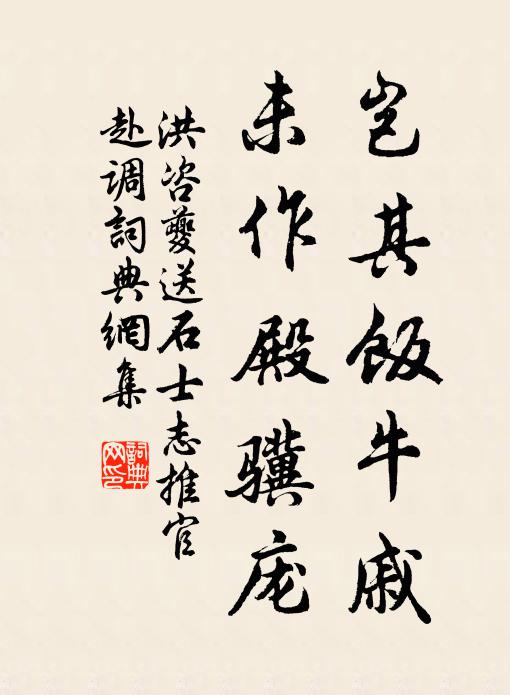 岂其饭牛戚
未作殿骥庞
洪咨夔送石士志推官
赴调詞典網集
詞典
网印